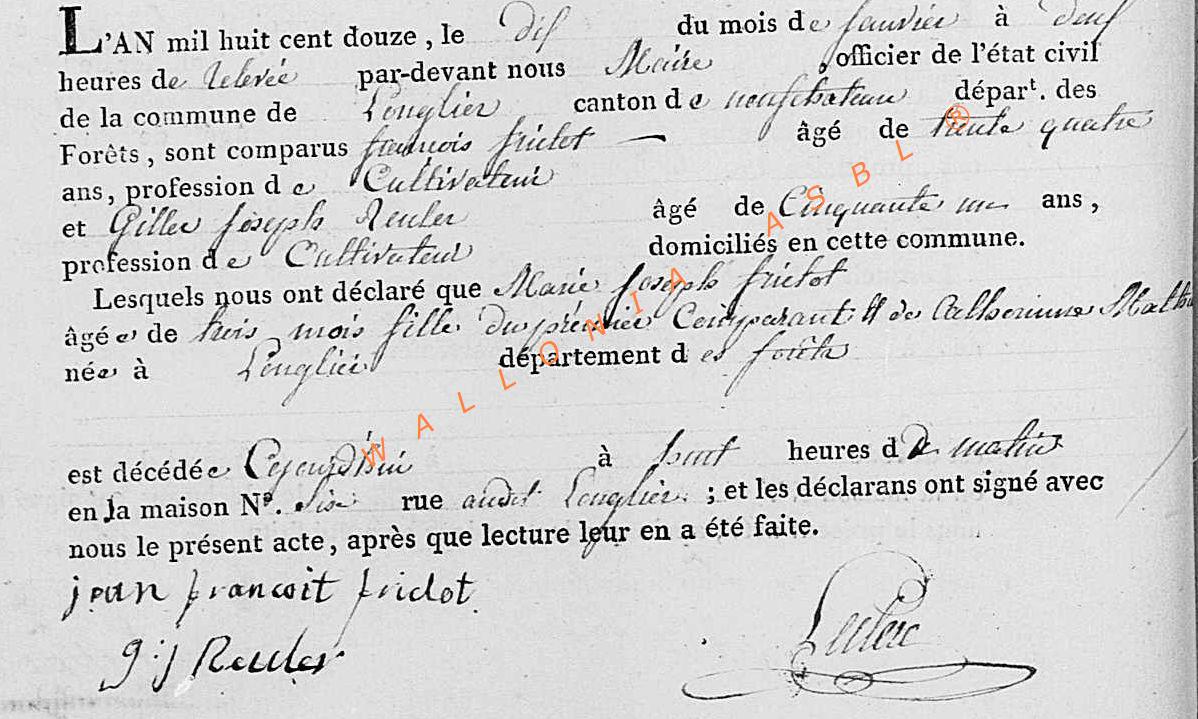 L'AN mil huit cent douze, le dix du mois de janvier à deux
heures de relevée par-devant nous Maire, officier de l'état civil
de la commune de Longlier canton de neufchateauépart. des
Forêts, sont comparus françois frictot — âgé de trente quatre
ans, profession de Cultivateur
et Gilles joseph Reuler âgé de Cinquante un ans,
profession de Cultivateur domiciliés en cette commune.
Lesquels nous ont déclaré que Marie joseph frictot
âgée de trois mois fille du prémier Comparant & de Catherinne
née à Longlier département des forêts
est décédée Cejourd'hui à heures de matin
en la maison Nº. sixe rue audit Longlier; et les déclarans ont signé avec
nous le présent acte, après que lecture leur en a été faite.
jean francoit frictot
g:j Reuler Leclerc
WALLONIA ASBL ®